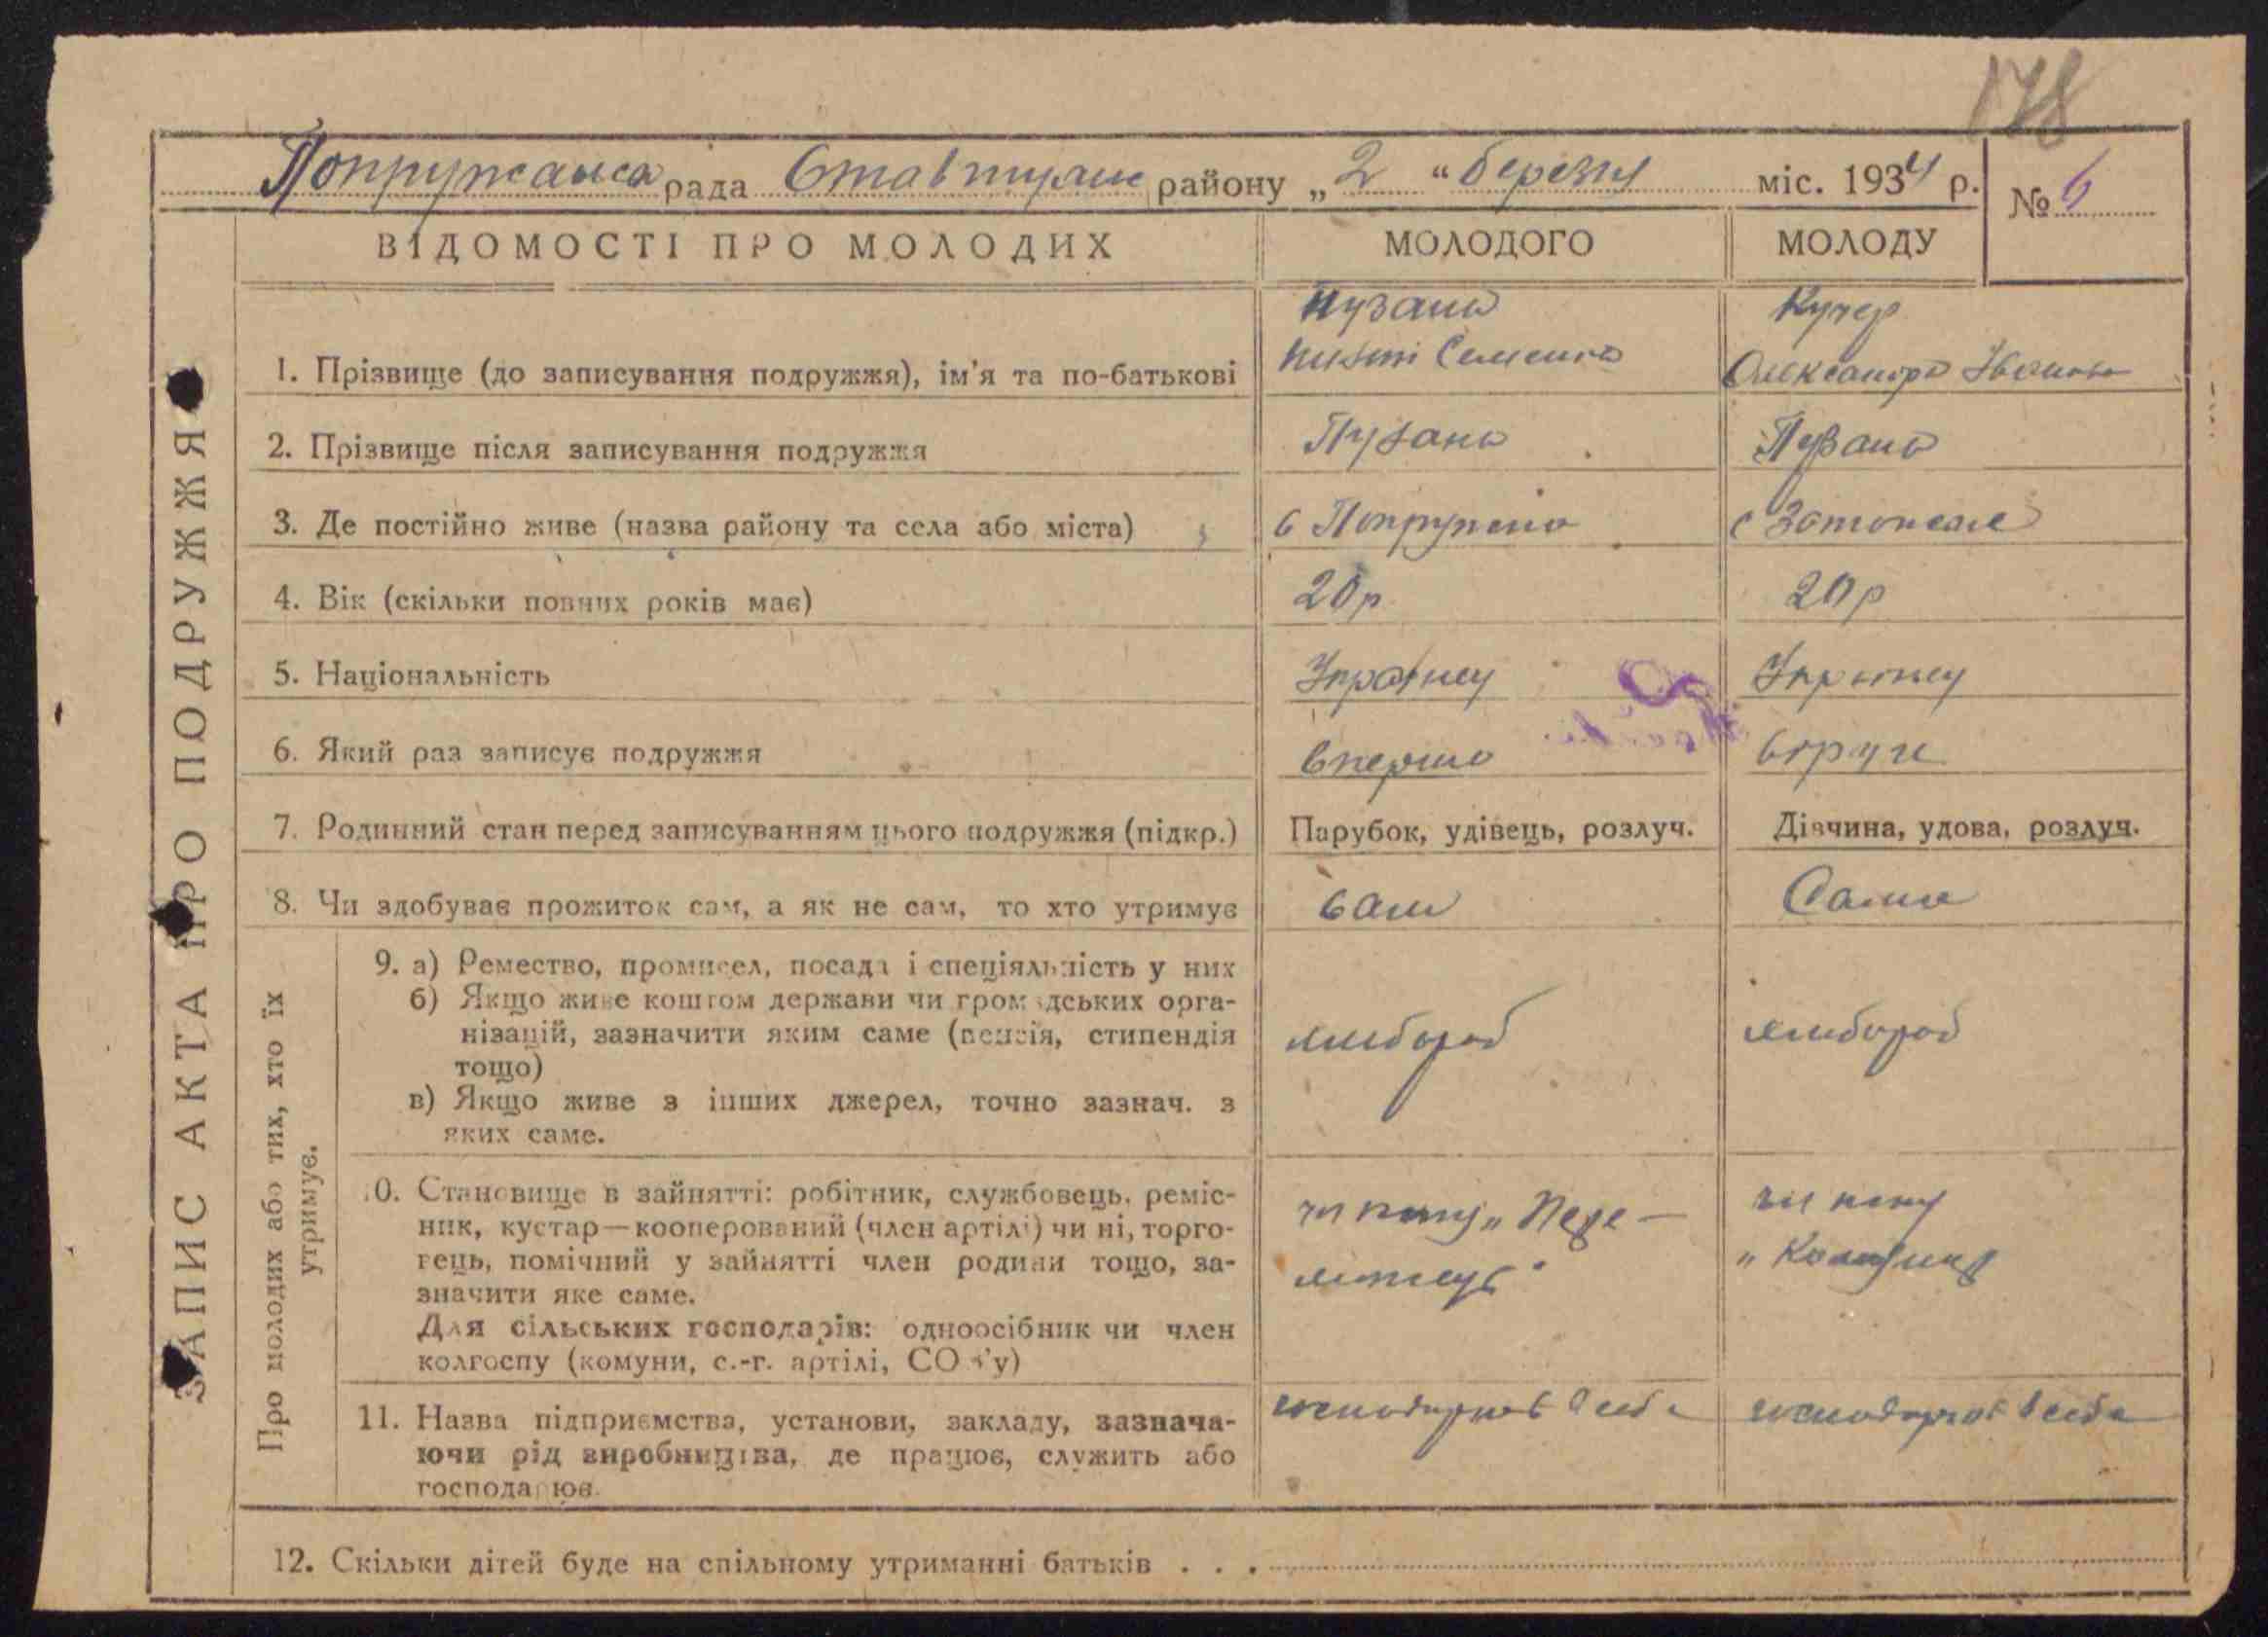 178
Попружанса рада Ставищан району „2“ березня міс. 1934 р.
№ 6
ВІДОМОСТІ ПРО МОЛОДИХ МОЛОДОГО МОЛОДУ
ЗАПИС АКТА ПРО ПОДРУЖЖЯ
Пузань Кучер
1. Прізвище (до записування подружжя), ім’я та по-батькові Семенов Олександра Іванов
2. Прізвище після записування подружжя Пузань Пузань
3. Де постійно живе (назва району та села або міста) с Попружна с
4. Вік (скільки повних років має) 20р 20р
5. Національність Украінец Украінец
6. Який раз записує подружжя Вперше вдруге
7. Родинний стан перед записуванням цього подружжя (підкр.) Парубок, удівець, розлуч. Дівчина, удова, розлуч.
8. Чи здобуває прожиток сам, а як не сам, то хто утримує сам Сама
Про молодих або тих, хто їх утримує.
9. а) Ремество, промисел, посада і спеціяльність у них
б) Якщо живе коштом держави чи громадських орга-
нізацій, зазначити яким саме (пенсія, стипендія
тощо)
хлибороб хлибороб
в) Якщо живе з інших джерел, точно зазнач. з
яких саме.
10. Становище в зайнятті: робітник, службовець, реміс-
ник, кустар—кооперований (член артілі) чи ні, торго-
вець, помічний у зайнятті член родини тощо, за-
значити яке саме.
Для сільських господарів: одноосібник чи член
колгоспу (комуни, с.-г. артілі, СОЗ’у)
11. Назва підприємства, установи, закладу, зазнача-
ючи рід виробництва, де працює, служить або
господарює.
12. Скільки дітей буде на спільному утриманні батьків . . .